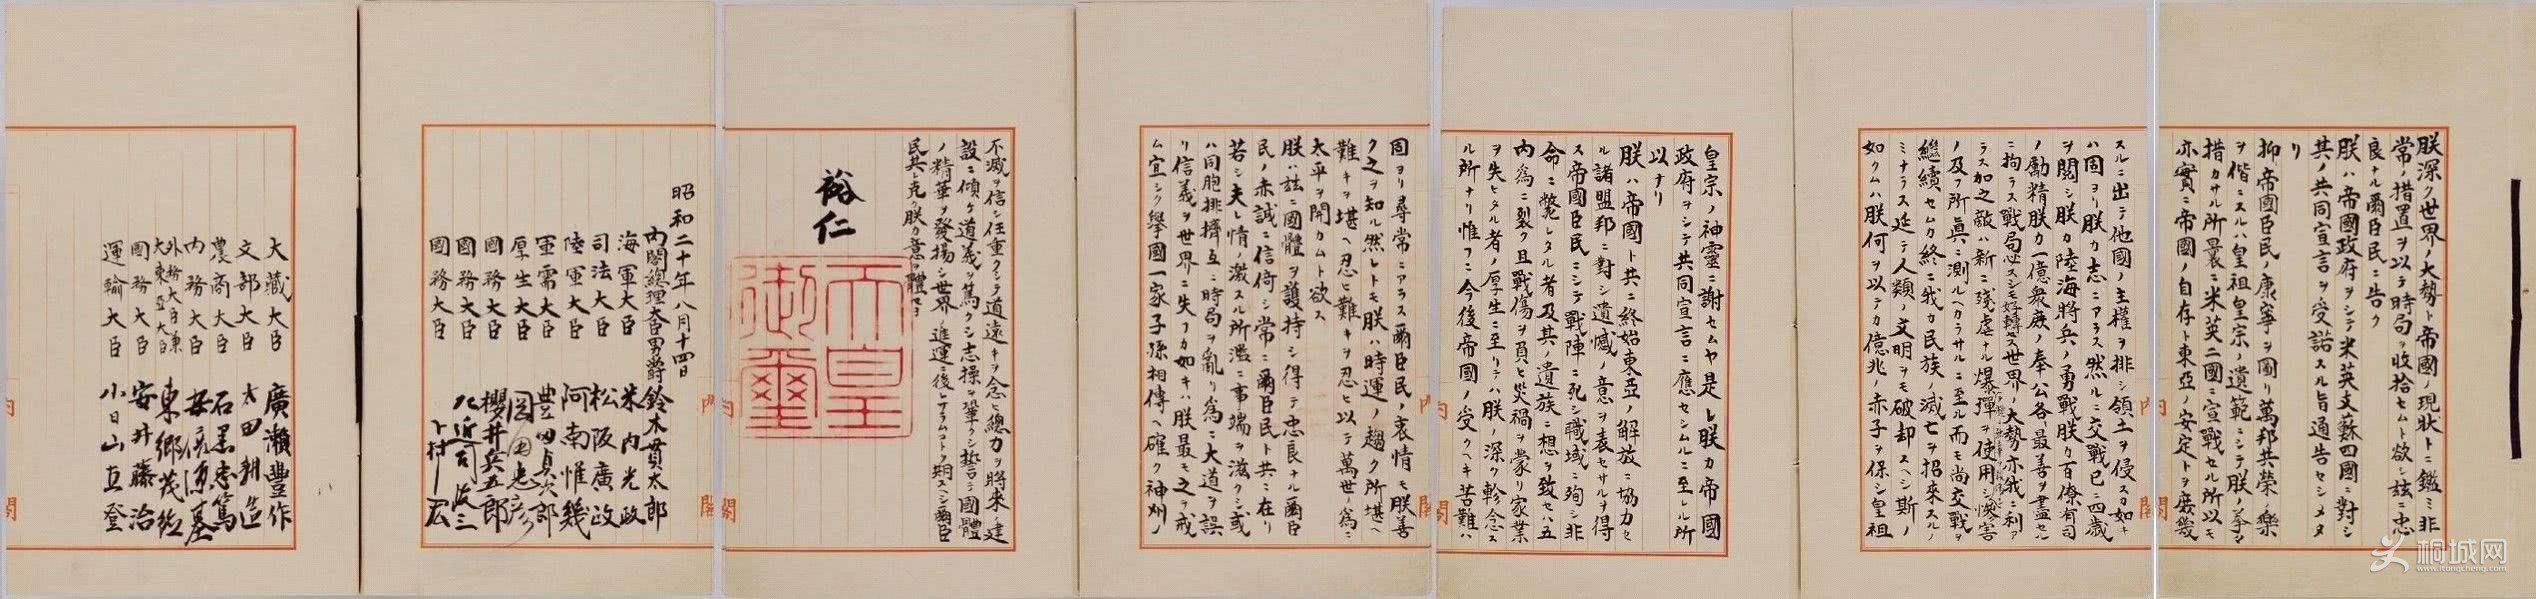 朕深ク世界ノ大勢ト帝國ノ現狀トニ鑑ミ非
常ノ措置ヲ以テ時局ヲ收拾セムト欲シ茲ニ忠
良ナル爾臣民ニ告ク
朕ハ帝國政府ヲシテ米英支蘇四國ニ對シ
其ノ共同宣言ヲ受諾スル旨通告セシメタ
リ
抑〻帝國臣民ノ康寧ヲ圖リ萬邦共榮ノ樂
ヲ偕ニスルハ皇祖皇宗ノ遺範ニシテ朕ノ拳〻
措カサル所曩ニ米英二國ニ宣戰セル所以モ
亦實ニ帝國ノ自存ト東亞ノ安定トヲ庶幾
スルニ出テ他國ノ主權ヲ排シ領土ヲ侵スカ如キ
ハ固ヨリ朕カ志ニアラス然ルニ交戰已ニ四歲
ヲ閱シ朕カ陸海將兵ノ勇戰朕カ百僚有司
ノ勵精朕カ一億衆庶ノ奉公各〻最善ヲ盡セル
ニ拘ラス戰局必スシモ好轉セス世界ノ大勢亦我ニ利ア
ラス加之敵ハ新ニ殘虐ナル爆彈ヲ使用シテ
ノ及フ所眞ニ測ルヘカラサルニ至ル而モ尚交戰ヲ
繼續セムカ終ニ我カ民族ノ滅亡ヲ招來スルノ
ミナラス延テ人類ノ文明ヲモ破却スヘシ斯ノ
如クムハ朕何ヲ以テカ億兆ノ赤子ヲ保シ皇祖
皇宗ノ神靈ニ謝セムヤ是レ朕カ帝國
政府ヲシテ共同宣言ニ應セシムルニ至レル所
以ナリ
朕ハ帝國ト共ニ終始東亞ノ解放ニ協力セ
ル諸盟邦ニ對シ遺憾ノ意ヲ表セサルヲ得
ス帝國臣民ニシテ戰陣ニ死シ職域ニ殉シ非
命ニ斃レタル者及其ノ遺族ニ想ヲ致セハ五
內爲ニ裂ク且戰傷ヲ負ヒ災禍ヲ蒙リ家業
ヲ失ヒタル者ノ厚生ニ至リテハ朕ノ深ク軫念ス
ル所ナリ惟フニ今後帝國ノ受クヘキ苦難ハ
固ヨリ尋常ニアラス爾臣民ノ衷情モ朕善
ク之ヲ知ル然レトモ朕ハ時運ノ趨ク所堪ヘ
難キヲ堪ヘ忍ヒ難キヲ忍ヒ以テ萬世ノ爲ニ
太平ヲ開カムト欲ス
朕ハ茲ニ國體ヲ護持シ得テ忠良ナル爾臣
民ノ赤誠ニ信倚シ常ニ爾臣民ト共ニ在リ
若シ夫レ情ノ激スル所濫ニ事端ヲ滋クシ或
ハ同胞排擠互ニ時局ヲ亂リ爲ニ大道ヲ誤
リ信義ヲ世界ニ失フカ如キハ朕最モ之ヲ戒
ム宜シク擧國一家子孫相傳ヘ確ク神州ノ
不滅ヲ信シ任重クシテ道遠キヲ念ヒ總力ヲ將來ノ建
設ニ傾ケ道義ヲ篤クシ志操ヲ鞏クシ誓テ國體
ノ精華ヲ發揚シ世界ノ進運ニ後レサラムコトヲ期スヘシ爾臣
民其レ克ク朕カ意ヲ體セヨ
裕仁
天皇
御璽
昭和二十年八月十四日
內閣總理大臣男爵 鈴木貫太郎
海軍大臣 米內光政
司法大臣 松阪廣政
陸軍大臣 阿南惟幾
軍需大臣 豊田貞次郎
厚生大臣 岡田忠彥
國務大臣 櫻井兵五郎
國務大臣 左近司政三
國務大臣 下村宏
大藏大臣 廣瀨豐作
文部大臣 太田耕造
農商大臣 石黑忠篤
內務大臣 安倍源基
外務大臣兼
大東亞大臣 東鄕茂德
國務大臣 安井藤治
運輸大臣 小日山直登
內閣
內閣
內閣
內閣
桐城网
www.itongcheng.com